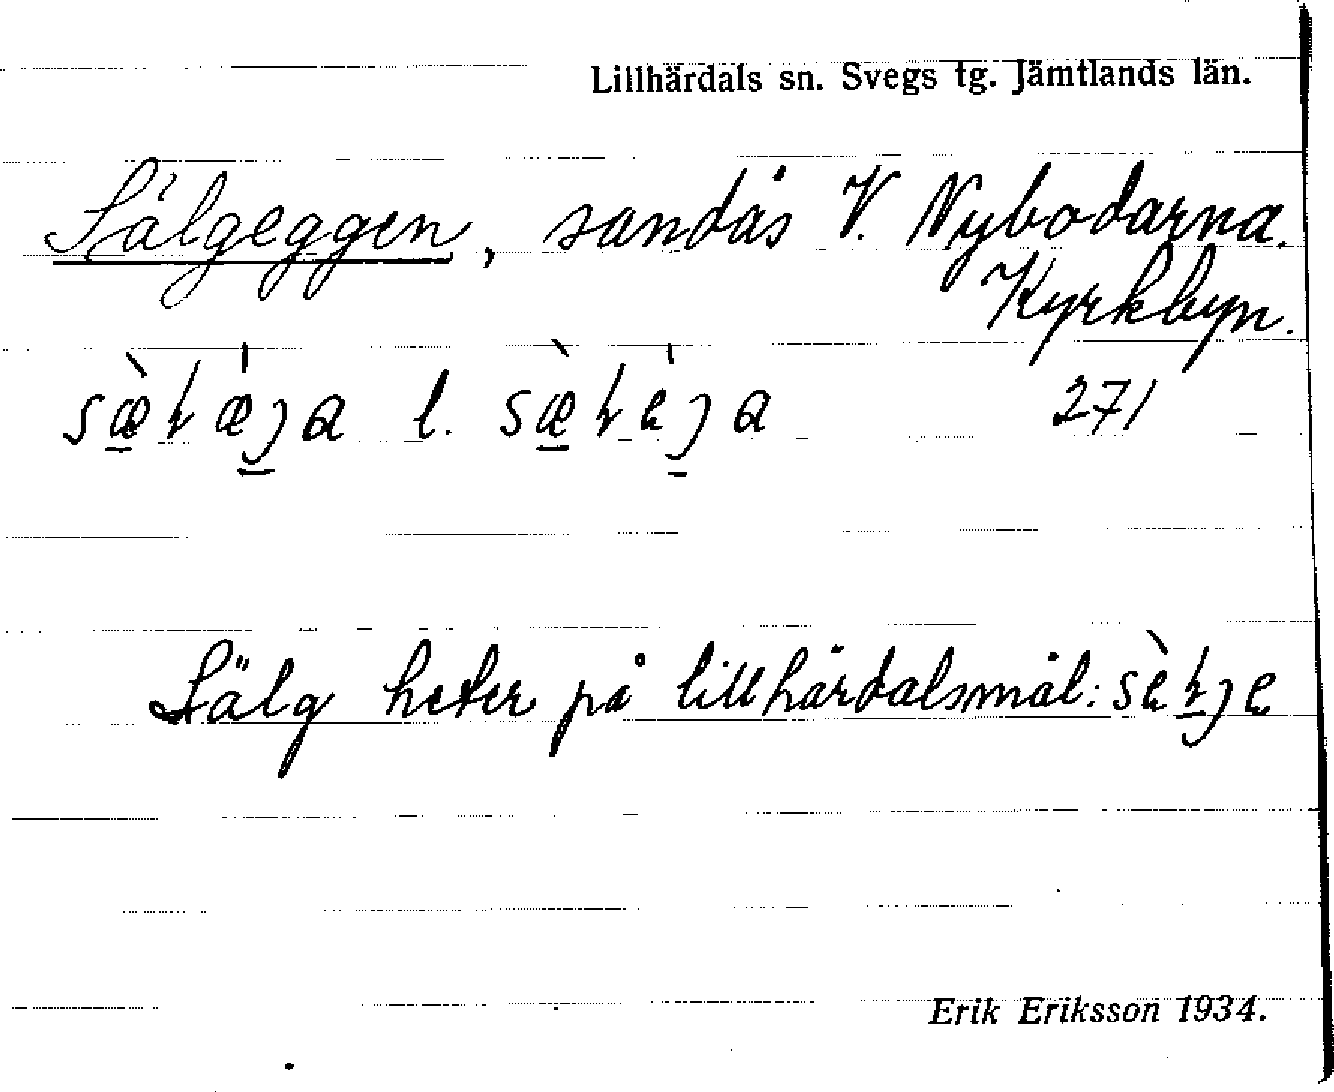 Lillhärdals sn. Svegs tg. Jämtlands län.
Sälgeggen, sandås V. Nybodarna.
Kyrkbyn.
l. 271
Sälg heter på lillhärdalsmål:
Erik Eriksson 1934.